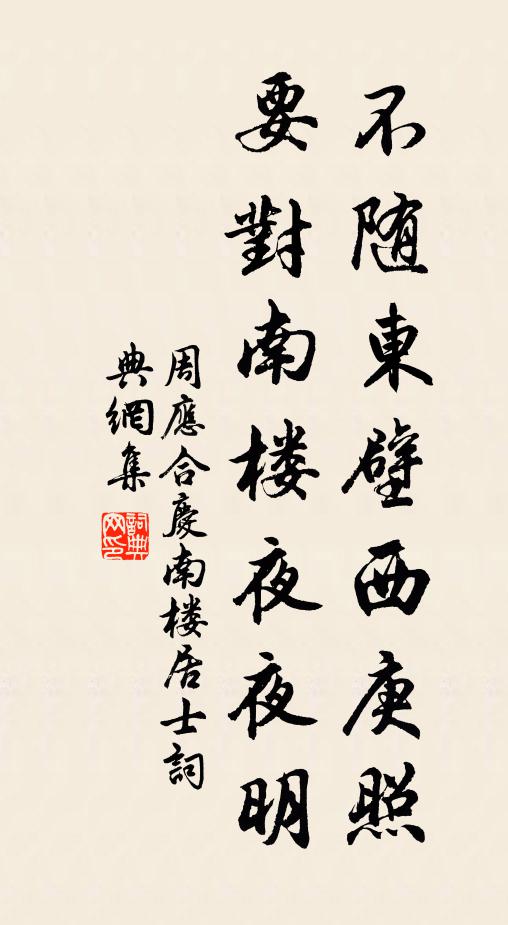 不随東壁西庚照
要對南楼夜夜明
周應合慶南楼居士詞
典網集
詞典網印